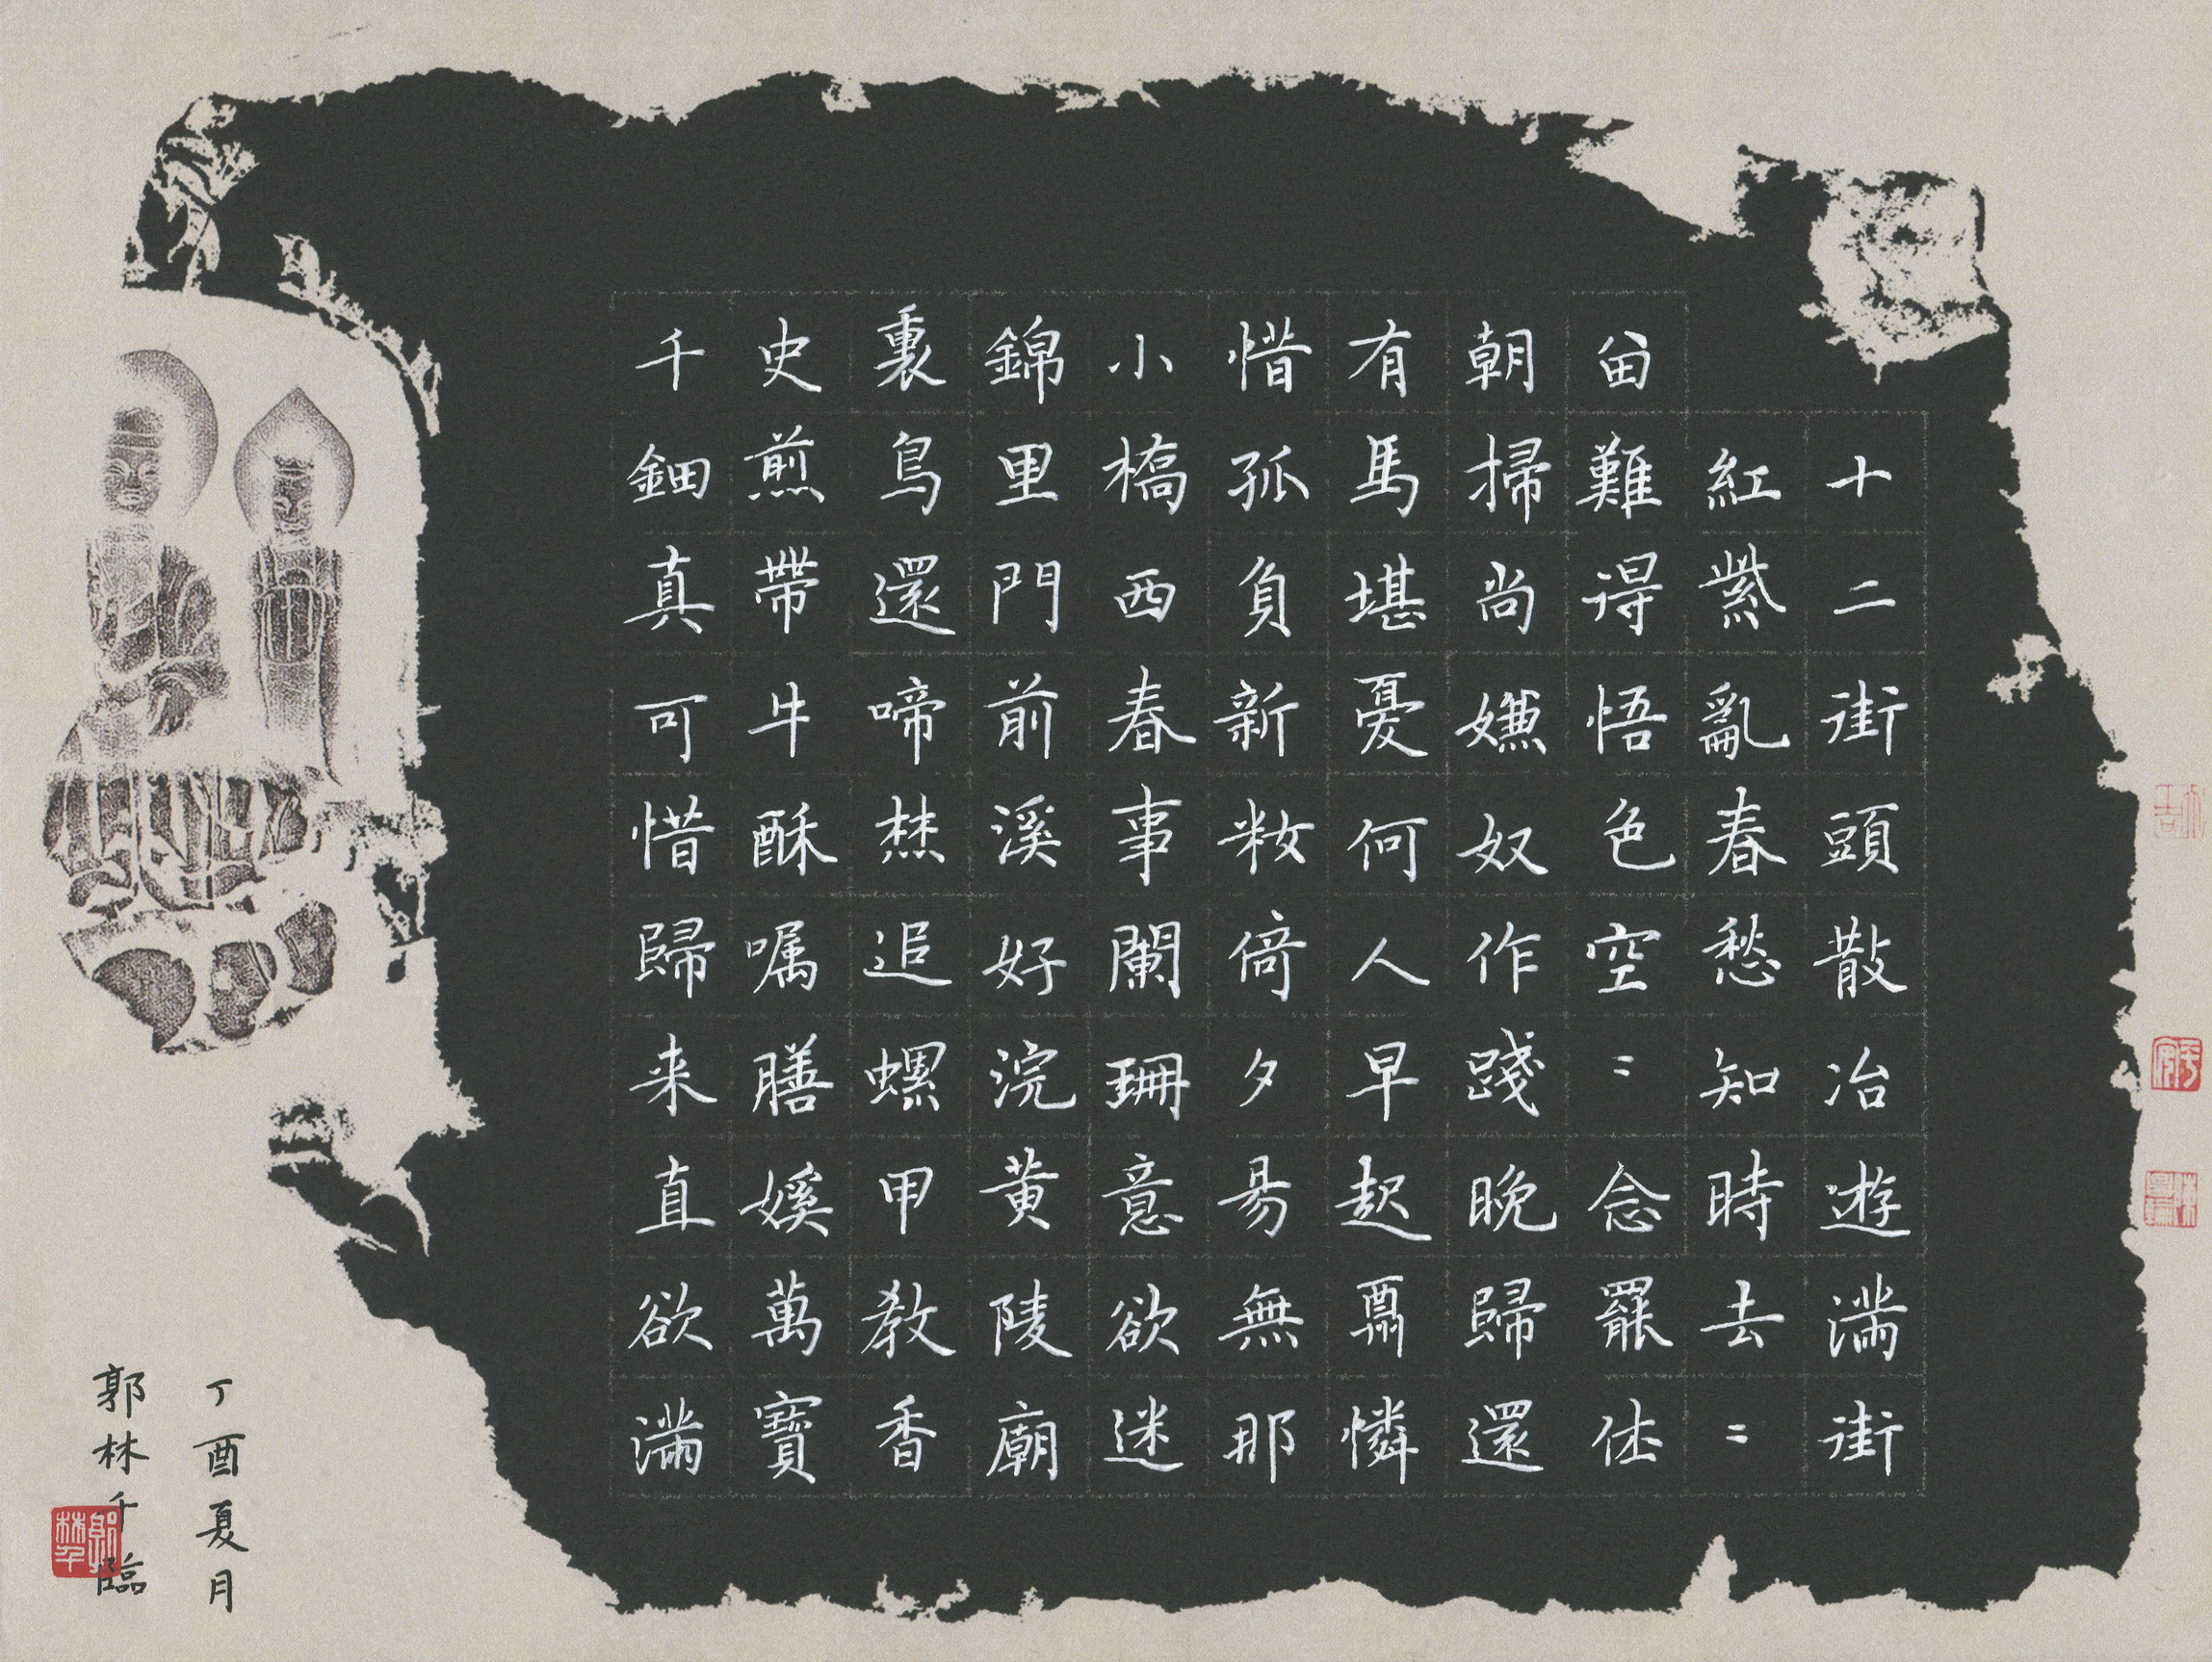 十二街頭散冶遊滿街
紅紫亂春愁知時去〻
留難得悟色空〻念罷休
朝掃尚嫌奴作踐晚歸還
有馬堪憂何人早起憐
惜孤負新粧倚夕昜無那
小橋西春事闌珊意欲迷
錦里門前溪好浣黄陵廟
裏鳥還啼焚追螺甲教香
史煎帶牛酥嘱膳㜎萬寶
千鈿真可惜歸来直欲滿
丁酉夏月
郭林千臨